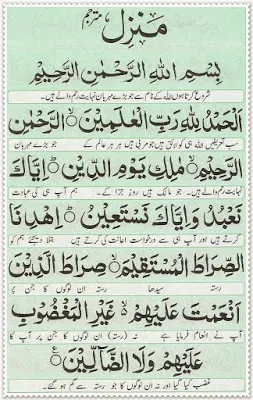 منزل مترجم
بِسْمِ اللهِ الرَّحْمٰنِ الرَّحِيْمِ
شروع کرتا ہوں اللہ کے نام سے جو بڑے مہربان نہایت رحم والے ہیں۔
اَلْحَمْدُ لِلّٰهِ رَبِّ الْعٰلَمِيْنَ ۙ الرَّحْمٰنِ
سب تعریفیں اللہ ہی کو لائق ہیں جو مربی ہیں ہر ہر عالم کے جو بڑے مہربان
الرَّحِيْمِ ۙ مٰلِكِ يَوْمِ الدِّيْنِ ۗ اِيَّاكَ
نہایت رحم والے ہیں۔ جو مالک ہیں روز جزا کے۔ ہم آپ ہی کی عبادت
نَعْبُدُ وَاِيَّاكَ نَسْتَعِيْنُ ۗ اِهْدِنَا
کرتے ہیں اور آپ ہی سے درخواست اعانت کی کرتے ہیں بتلا دیجئے ہم کو
الصِّرَاطَ الْمُسْتَقِيْمَ ۙ صِرَاطَ الَّذِيْنَ
رستہ سیدھا رستہ ان لوگوں کا جن پر
اَنْعَمْتَ عَلَيْهِمْ ۙ غَيْرِ الْمَغْضُوْبِ
آپ نے انعام فرمایا ہے نہ (رستہ) ان لوگوں کا جن پر آپ کا
عَلَيْهِمْ وَلَا الضَّآلِّيْنَ
غضب کیا گیا اور نہ ان لوگوں کا جو رستہ سے گم ہو گئے۔